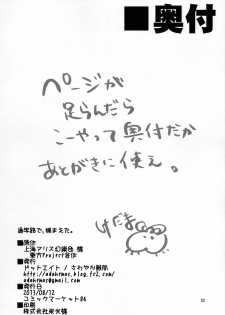 ■奥付
ページが
足らんだら
こーやって奥付だか
あとがきに使え。
けだま
過半跨で、捕まえた。
■原作
上海アリス幻樂団 様
東方Project合作
■発行
ドットエイト / さわやか鮫肌
■発行日
2013/08/12
コミックマーケット84
■印刷
株式会社栄光 様
22